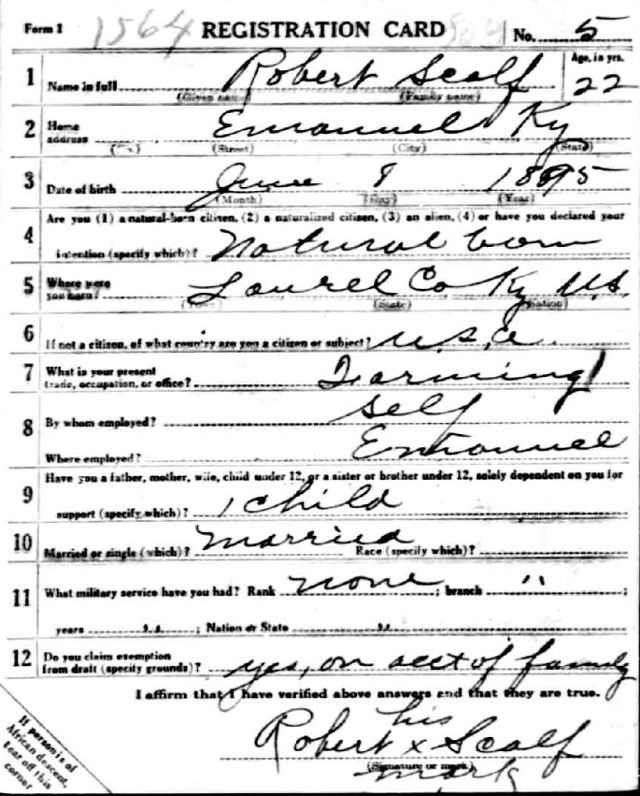 Form 1 1564 REGISTRATION CARD No. 5
1 Name in full Robert Scalf Age, in yrs. 22
(Given name) (Family name)
2 Home address Emanuel Ky
(No.) (Street) (City) (State)
3 Date of birth June 8 1895
(Month) (Day) (Year)
Are you (1) a natural-born citizen, (2) a naturalized citizen, (3) an alien, (4) or have you declared your
4 intention (specify which)? Natural born
5 Where were you born? Laurel Co Ky U.S.
(Town) (State) (Nation)
6 If not a citizen, of what country are you a citizen or subject? U.S.A.
7 What is your present trade, occupation, or office? Farming
8 By whom employed? Self
Where employed? Emanuel
9 Have you a father, mother, wife, child under 12, or a sister or brother under 12, solely dependent on you for
support (specify which)? 1 child
10 Married or single (which)? Married Race (specify which)?
11 What military service have you had? Rank none ; branch " ;
years " ; Nation or State "
12 Do you claim exemption from draft (specify grounds)? yes, on acct of family
I affirm that I have verified above answers and that they are true.
his
Robert x Scalf
(Signature or mark)
mark
If person is of
African descent,
tear off this
corner